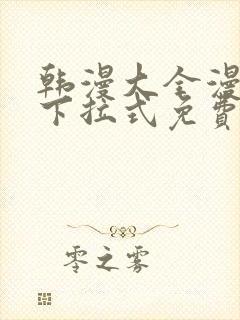 韩漫大全漫
下拉式免费
零之雾